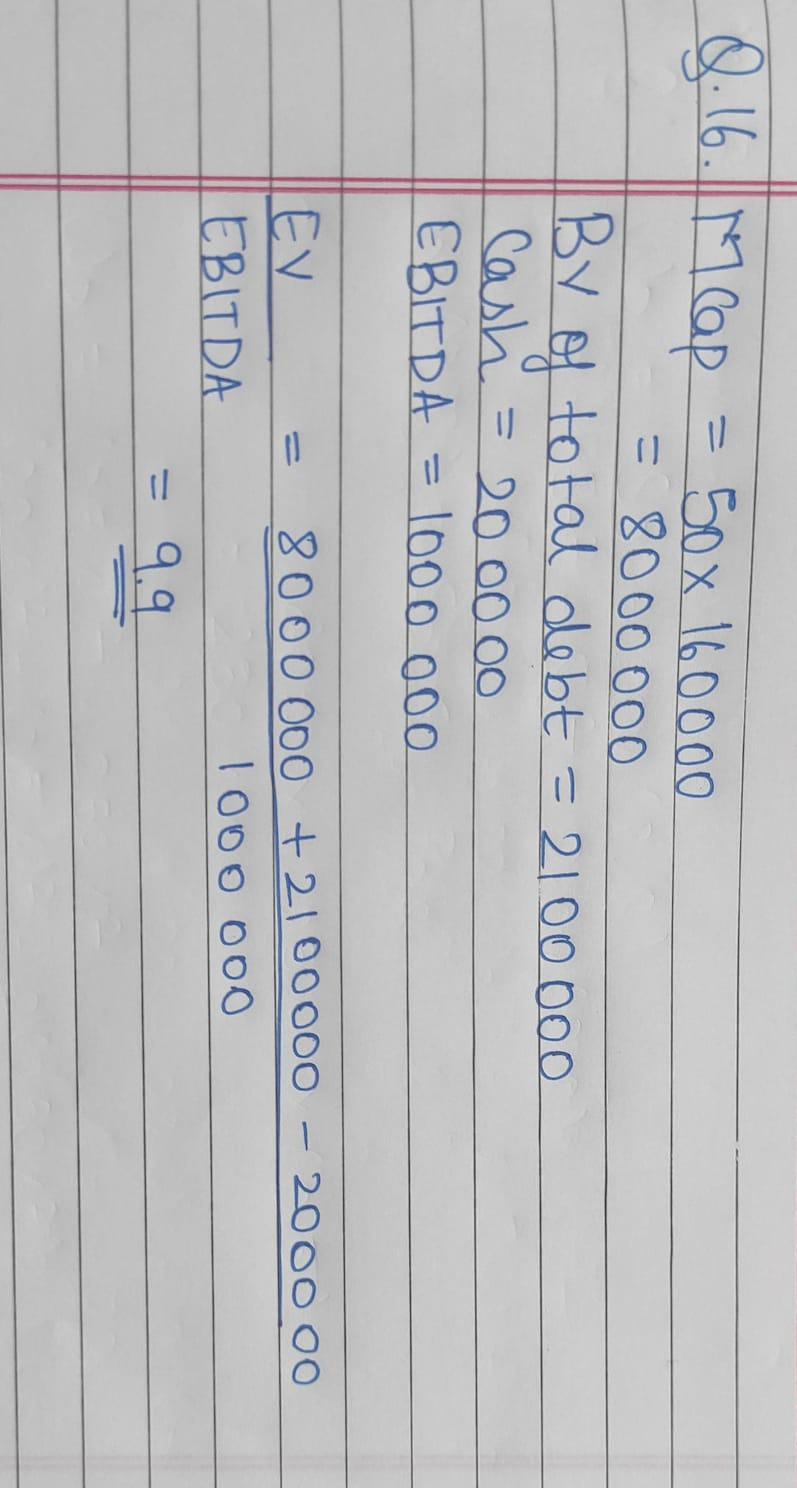 Q.16. M Cap = 50 x 160000
= 8000000
BV of total debt = 2100000
Cash = 200000
EBITDA = 1000 000
EV = 8000000 + 2100000 - 200000
EBITDA 1000 000
= 9.9